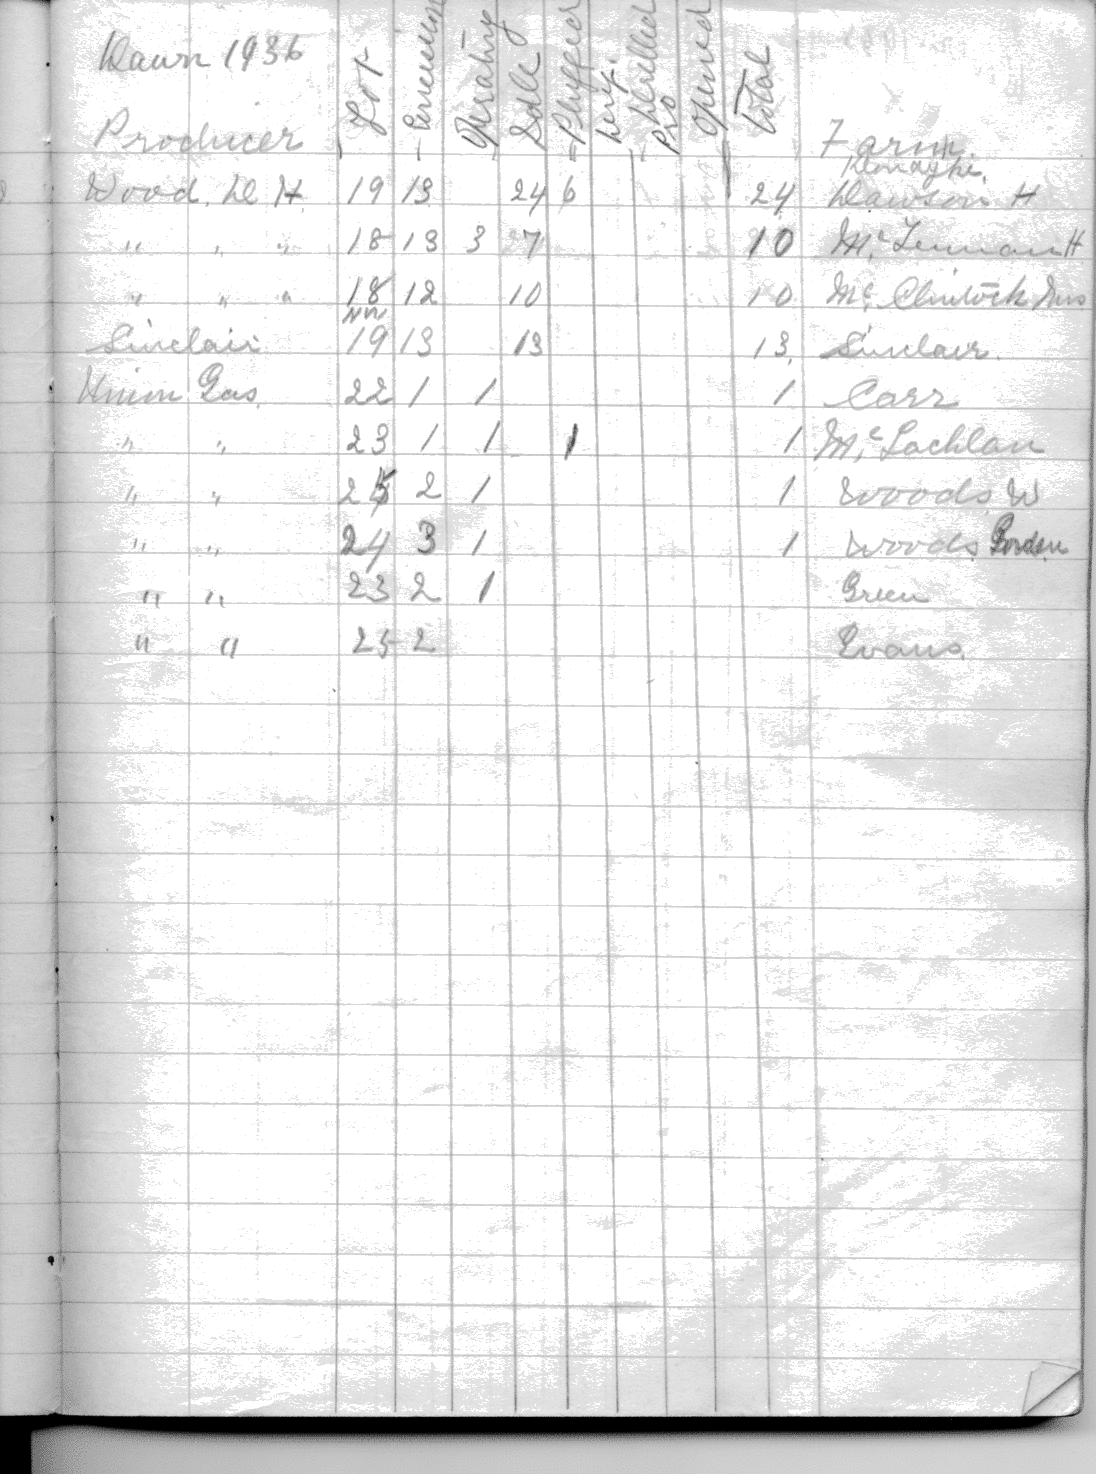 Dawn 1936
Producer Lot Concession Operating Idle Plugged Drilled Pro Opened Total Farm
Wood, D H 19 13 24 6 24 Dawson H
" " " 18 13 3 7 10 Mc Lennan H
" " " 18 12 10 10 Mc Clintock Mrs
Sinclair 19 13 13 13 Sinclair
Union Gas 22 1 1 1 Carr
" " 23 1 1 1 1 Mc Lachlan
" " 25 2 1 1 Woods W
" " 24 3 1 1 Woods Gordon
" " 23 2 1 Green
" " 25 2 Evans